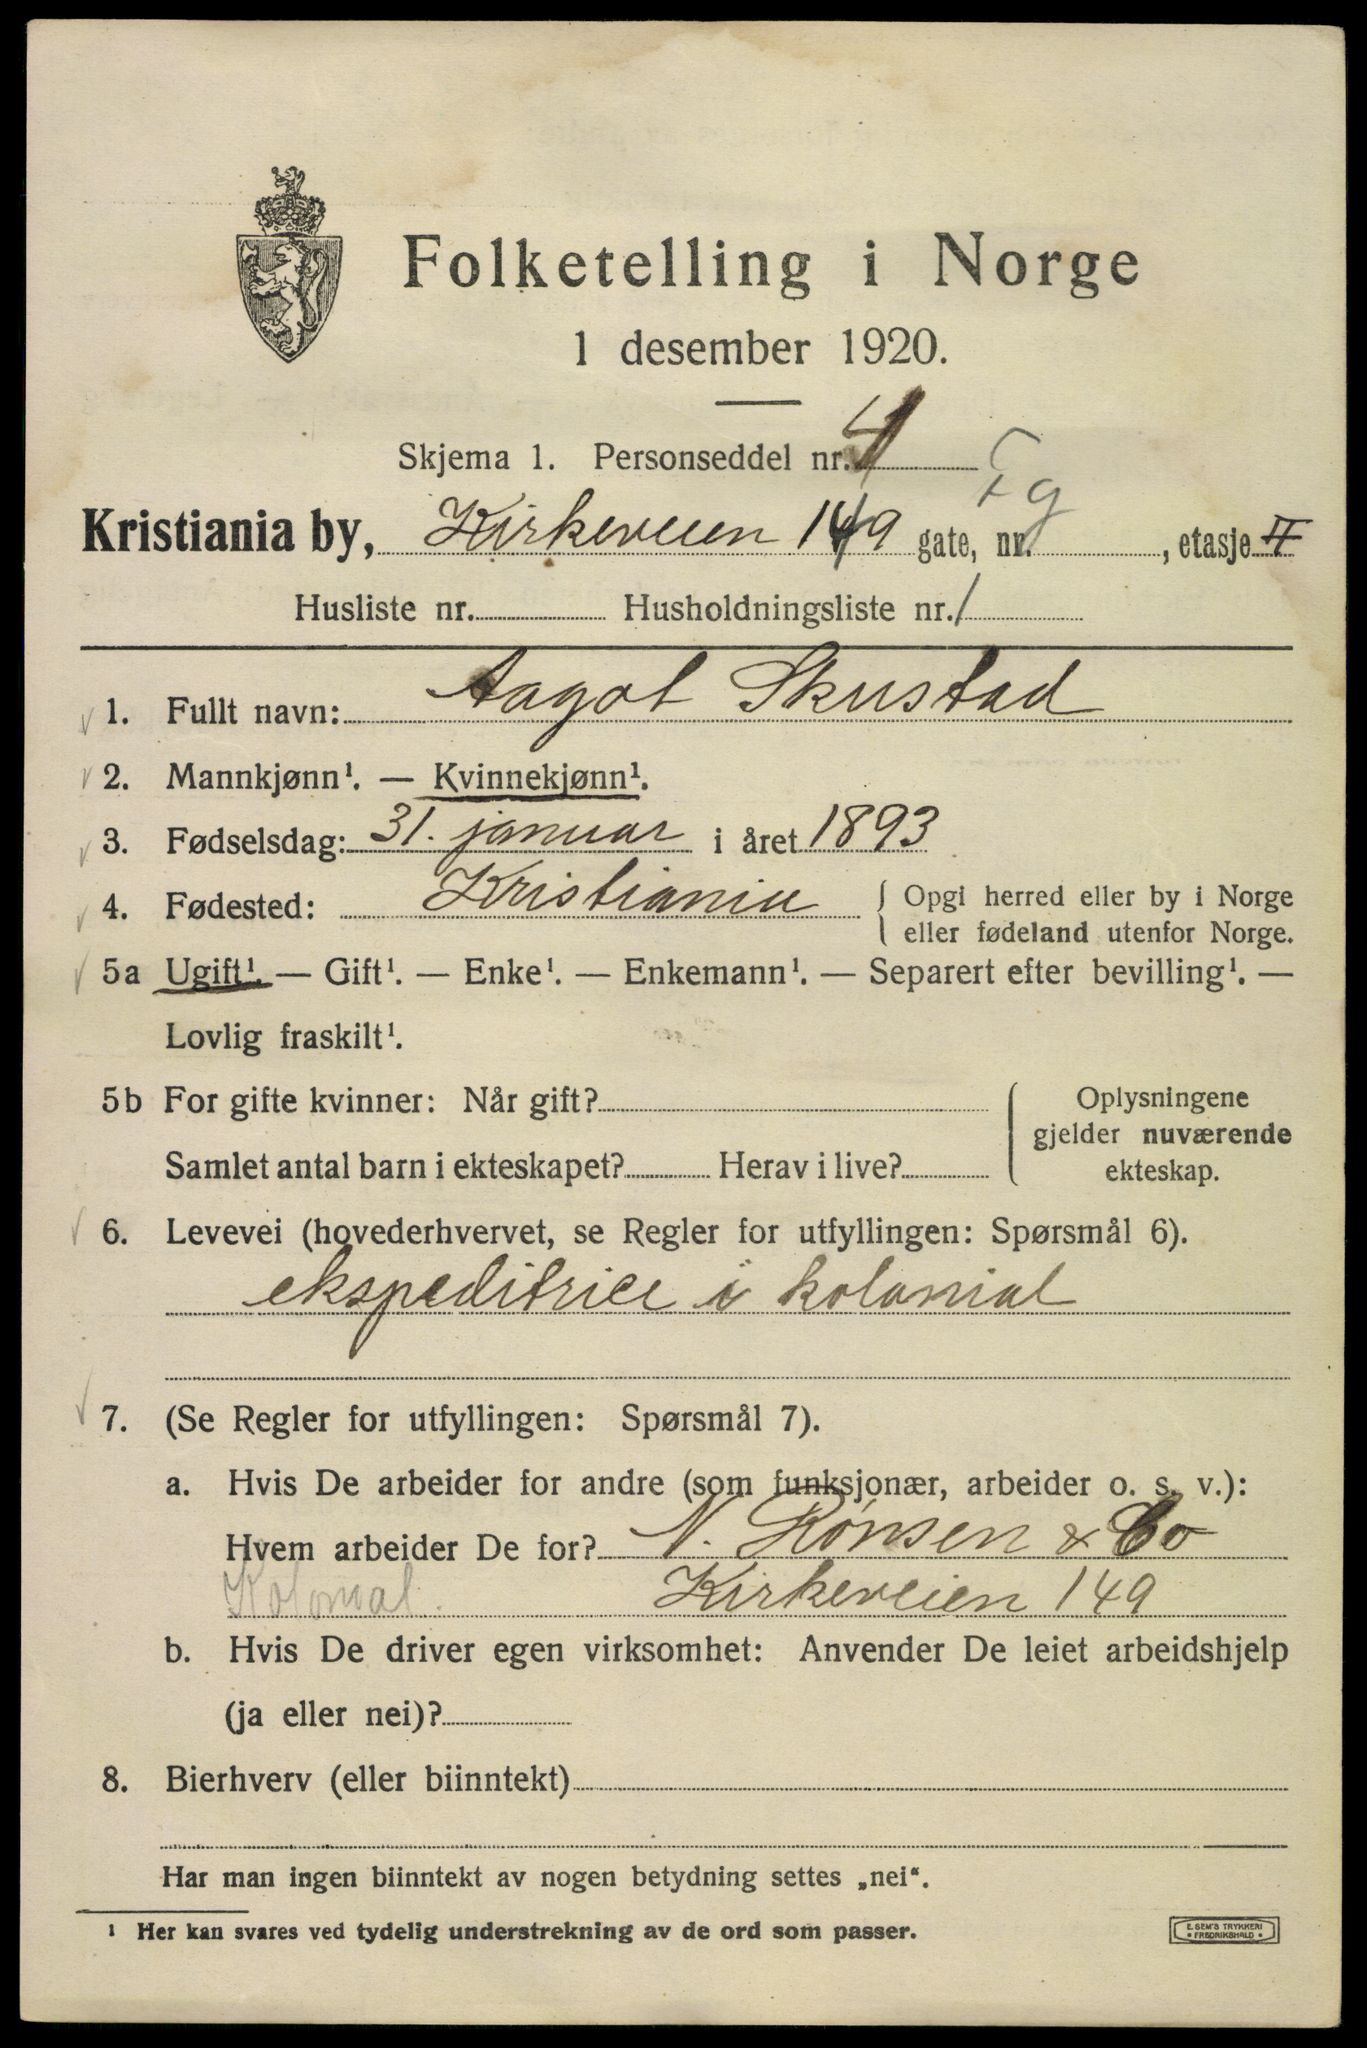 Folketelling i Norge
1 desember 1920.
Skjema 1. Personseddel nr. 4
Kristiania by, Kirkeveien 149 gate, nr. , etasje II
Husliste nr. Husholdningsliste nr. 1
1. Fullt navn: Aagot Skustad
2. Mannkjønn¹. — Kvinnekjønn¹.
3. Fødselsdag: 31. januar i året 1893
4. Fødested: Kristiania { Opgi herred eller by i Norge
eller fødeland utenfor Norge.
5a Ugift¹. — Gift¹. — Enke¹. — Enkemann¹. — Separert efter bevilling¹. —
Lovlig fraskilt¹.
5b For gifte kvinner: Når gift?
Samlet antal barn i ekteskapet? Herav i live?
Oplysningene
gjelder nuværende
ekteskap.
6. Levevei (hovederhvervet, se Regler for utfyllingen: Spørsmål 6).
ekspeditrice i kolonial
7. (Se Regler for utfyllingen: Spørsmål 7).
a. Hvis De arbeider for andre (som funksjonær, arbeider o. s. v.):
Hvem arbeider De for? N. Rønsen & Co
Kolonial. Kirkeveien 149
b. Hvis De driver egen virksomhet: Anvender De leiet arbeidshjelp
(ja eller nei)?
8. Bierhverv (eller biinntekt)
Har man ingen biinntekt av nogen betydning settes „nei“.
¹ Her kan svares ved tydelig understrekning av de ord som passer.
E. SEM'S TRYKKERI
• FREDRIKSHALD •